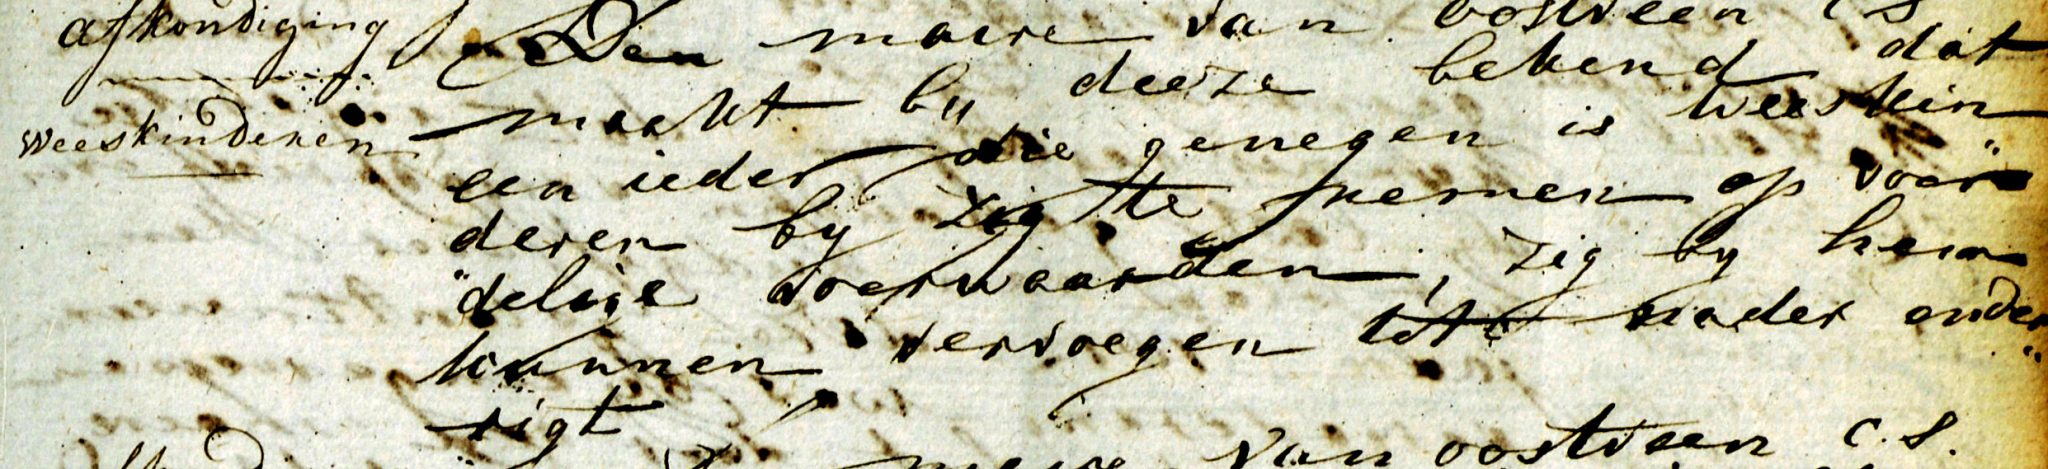 afkondiging
weeskinderen
Den maire van oostveen C S
maakt by deeze bekend dat
een ieder die genegen is weeskin
deren by zig te nemen op voor"
"delige voorwaarden, zig by hem
kunnen vervoegen tot nader onder"
rigt
van oostveen C.S.